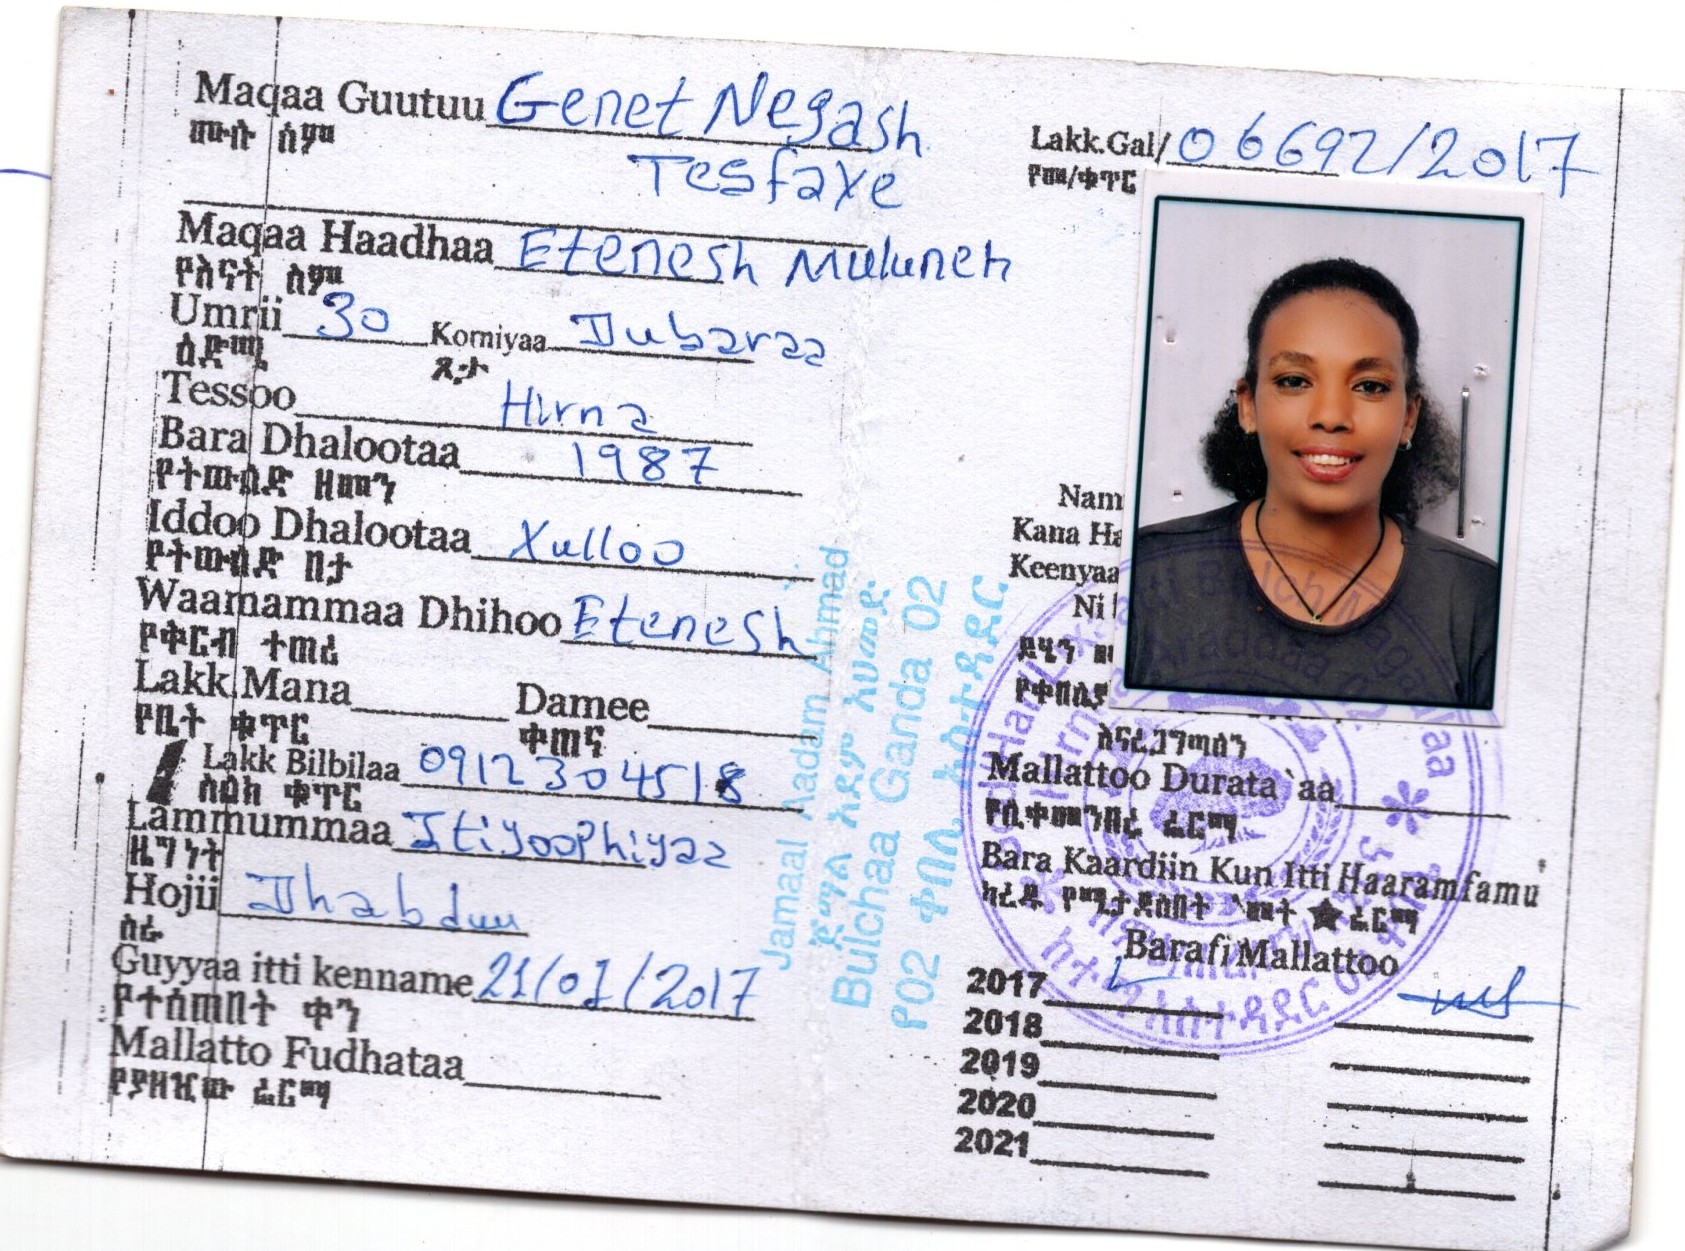 Maqaa Guutuu Genet Negash
ሙሉ ስም
Tesfaxe
Maqaa Haadhaa Etenesh Muluneh
የእናት ስም
Umrii 30 Korniyaa Dubaraa
ዕድሜ ጾታ
Tessoo Hirna
Bara Dhalootaa 1987
የትውልድ ዘመን
Iddoo Dhalootaa Xulloo
የትውልድ ቦታ
Waamammaa Dhihoo Etenesh
የቅርብ ተጠሪ
Lakk.Mana Damee
የቤት ቁጥር ቀጠና
Lakk Bilbilaa 0912304518
ስልክ ቁጥር
Lammummaa Itiyoophiyaa
ዜግነት
Hojii Dhabduu
ስራ
Guyyaa itti kenname 21/01/2017
የተሰጠበት ቀን
Mallatto Fudhataa
የያዘዠው ፊርማ
Jamaal Aadam Ahmad
ጀማል አደም አህመድ
Bulchaa Ganda 02
የ02 ቀበሌ አስተዳደር
Lakk.Gal/ 06692/2017
የመ/ቁጥር
Kana
Keenyaa
Ni
ይህን
እናረጋግጣለን
Mallattoo Durata`aa
የሊቀመንበሩ ፊርማ
Bara Kaardiin Kun Itti Haaramfamu
ካረዱ የሚታደስበት ዓመት ፊርማ
Barafi Mallattoo
2017
2018
2019
2020
2021